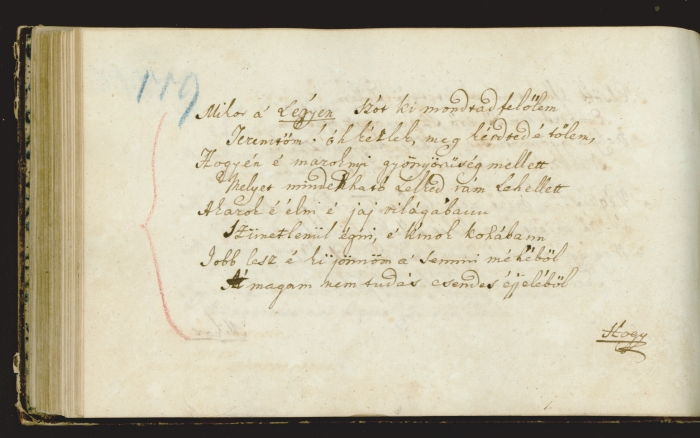 119
Mikor á Légyen szót ki mondtad felőlem
Teremtőm! óh kérlek, meg kérdted é tőlem,
Hogy én é maroknyi gyönyörűség mellett
Melyet mindenható Lelked rám Lehellett
Akarok é élni é jaj világábann
Szünetlenűl égni, é kínok kohábann
Jobb lesz é kijönnöm á semmi méhéből
'A magam nem tudás csendes éjjeléből
Hogy